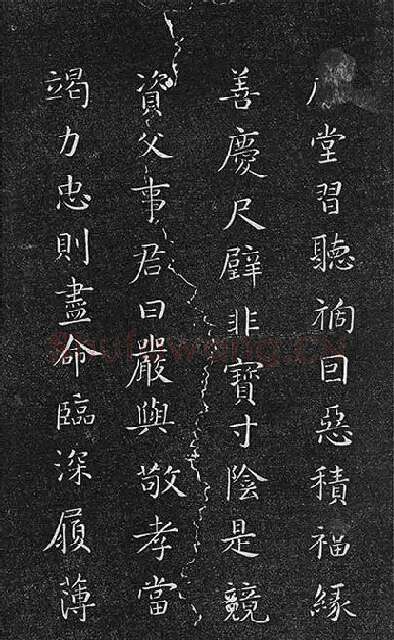 堂習聽禍因惡積福緣
善慶尺璧非寶寸陰是競
資父事君曰嚴與敬孝當
竭力忠則盡命臨深履薄